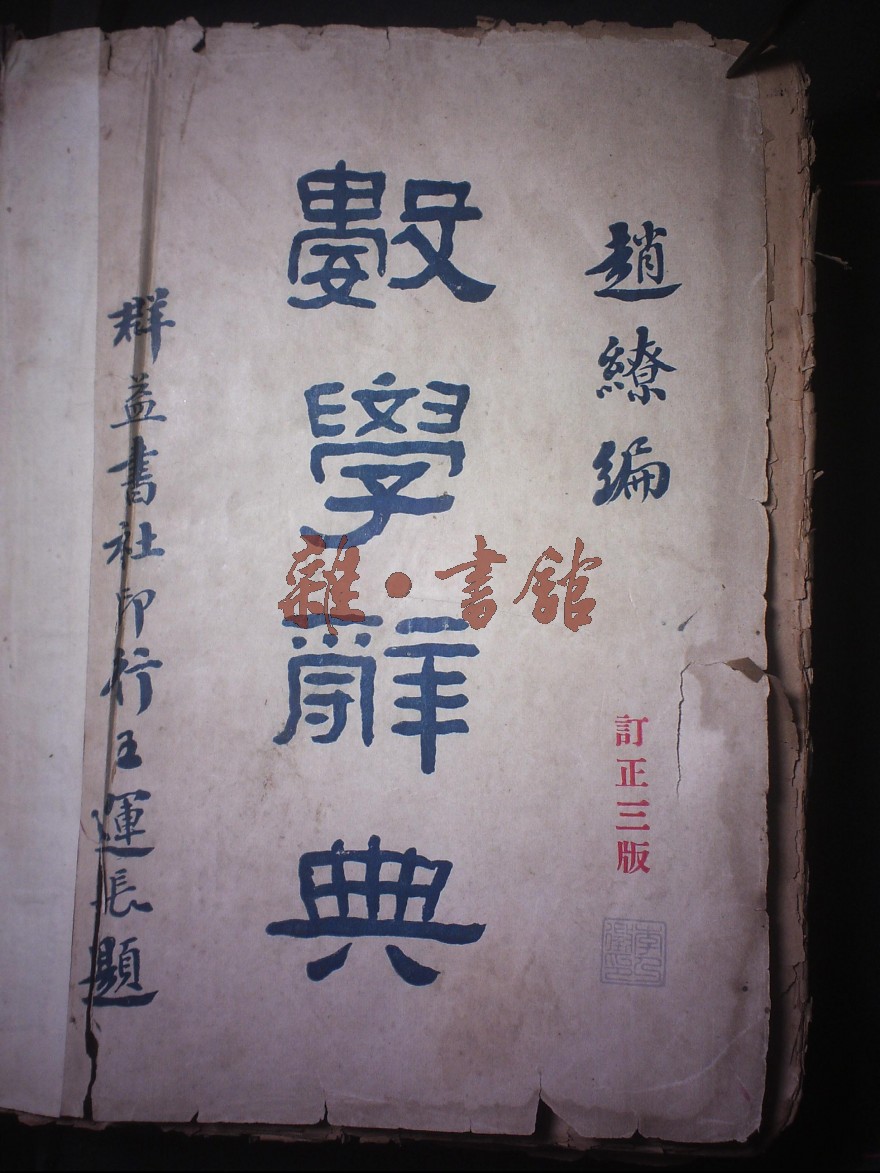 趙繚編
訂正三版
數學辭典
群益書社印行王運長題
雜·書館